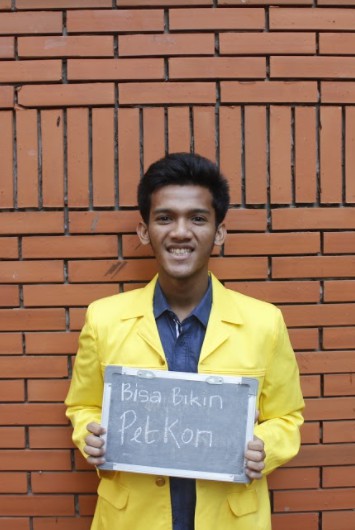 Bisa Bikin
PetKom